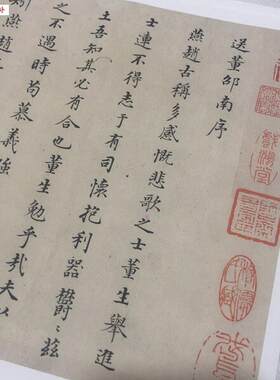 送董邵南序
燕趙古稱多感慨悲歌之士董生舉進
士連不得志于有司懷抱利器鬱々茲
土吾知其必有合也董生勉乎哉夫以
之不遇時苟慕義強
燕趙